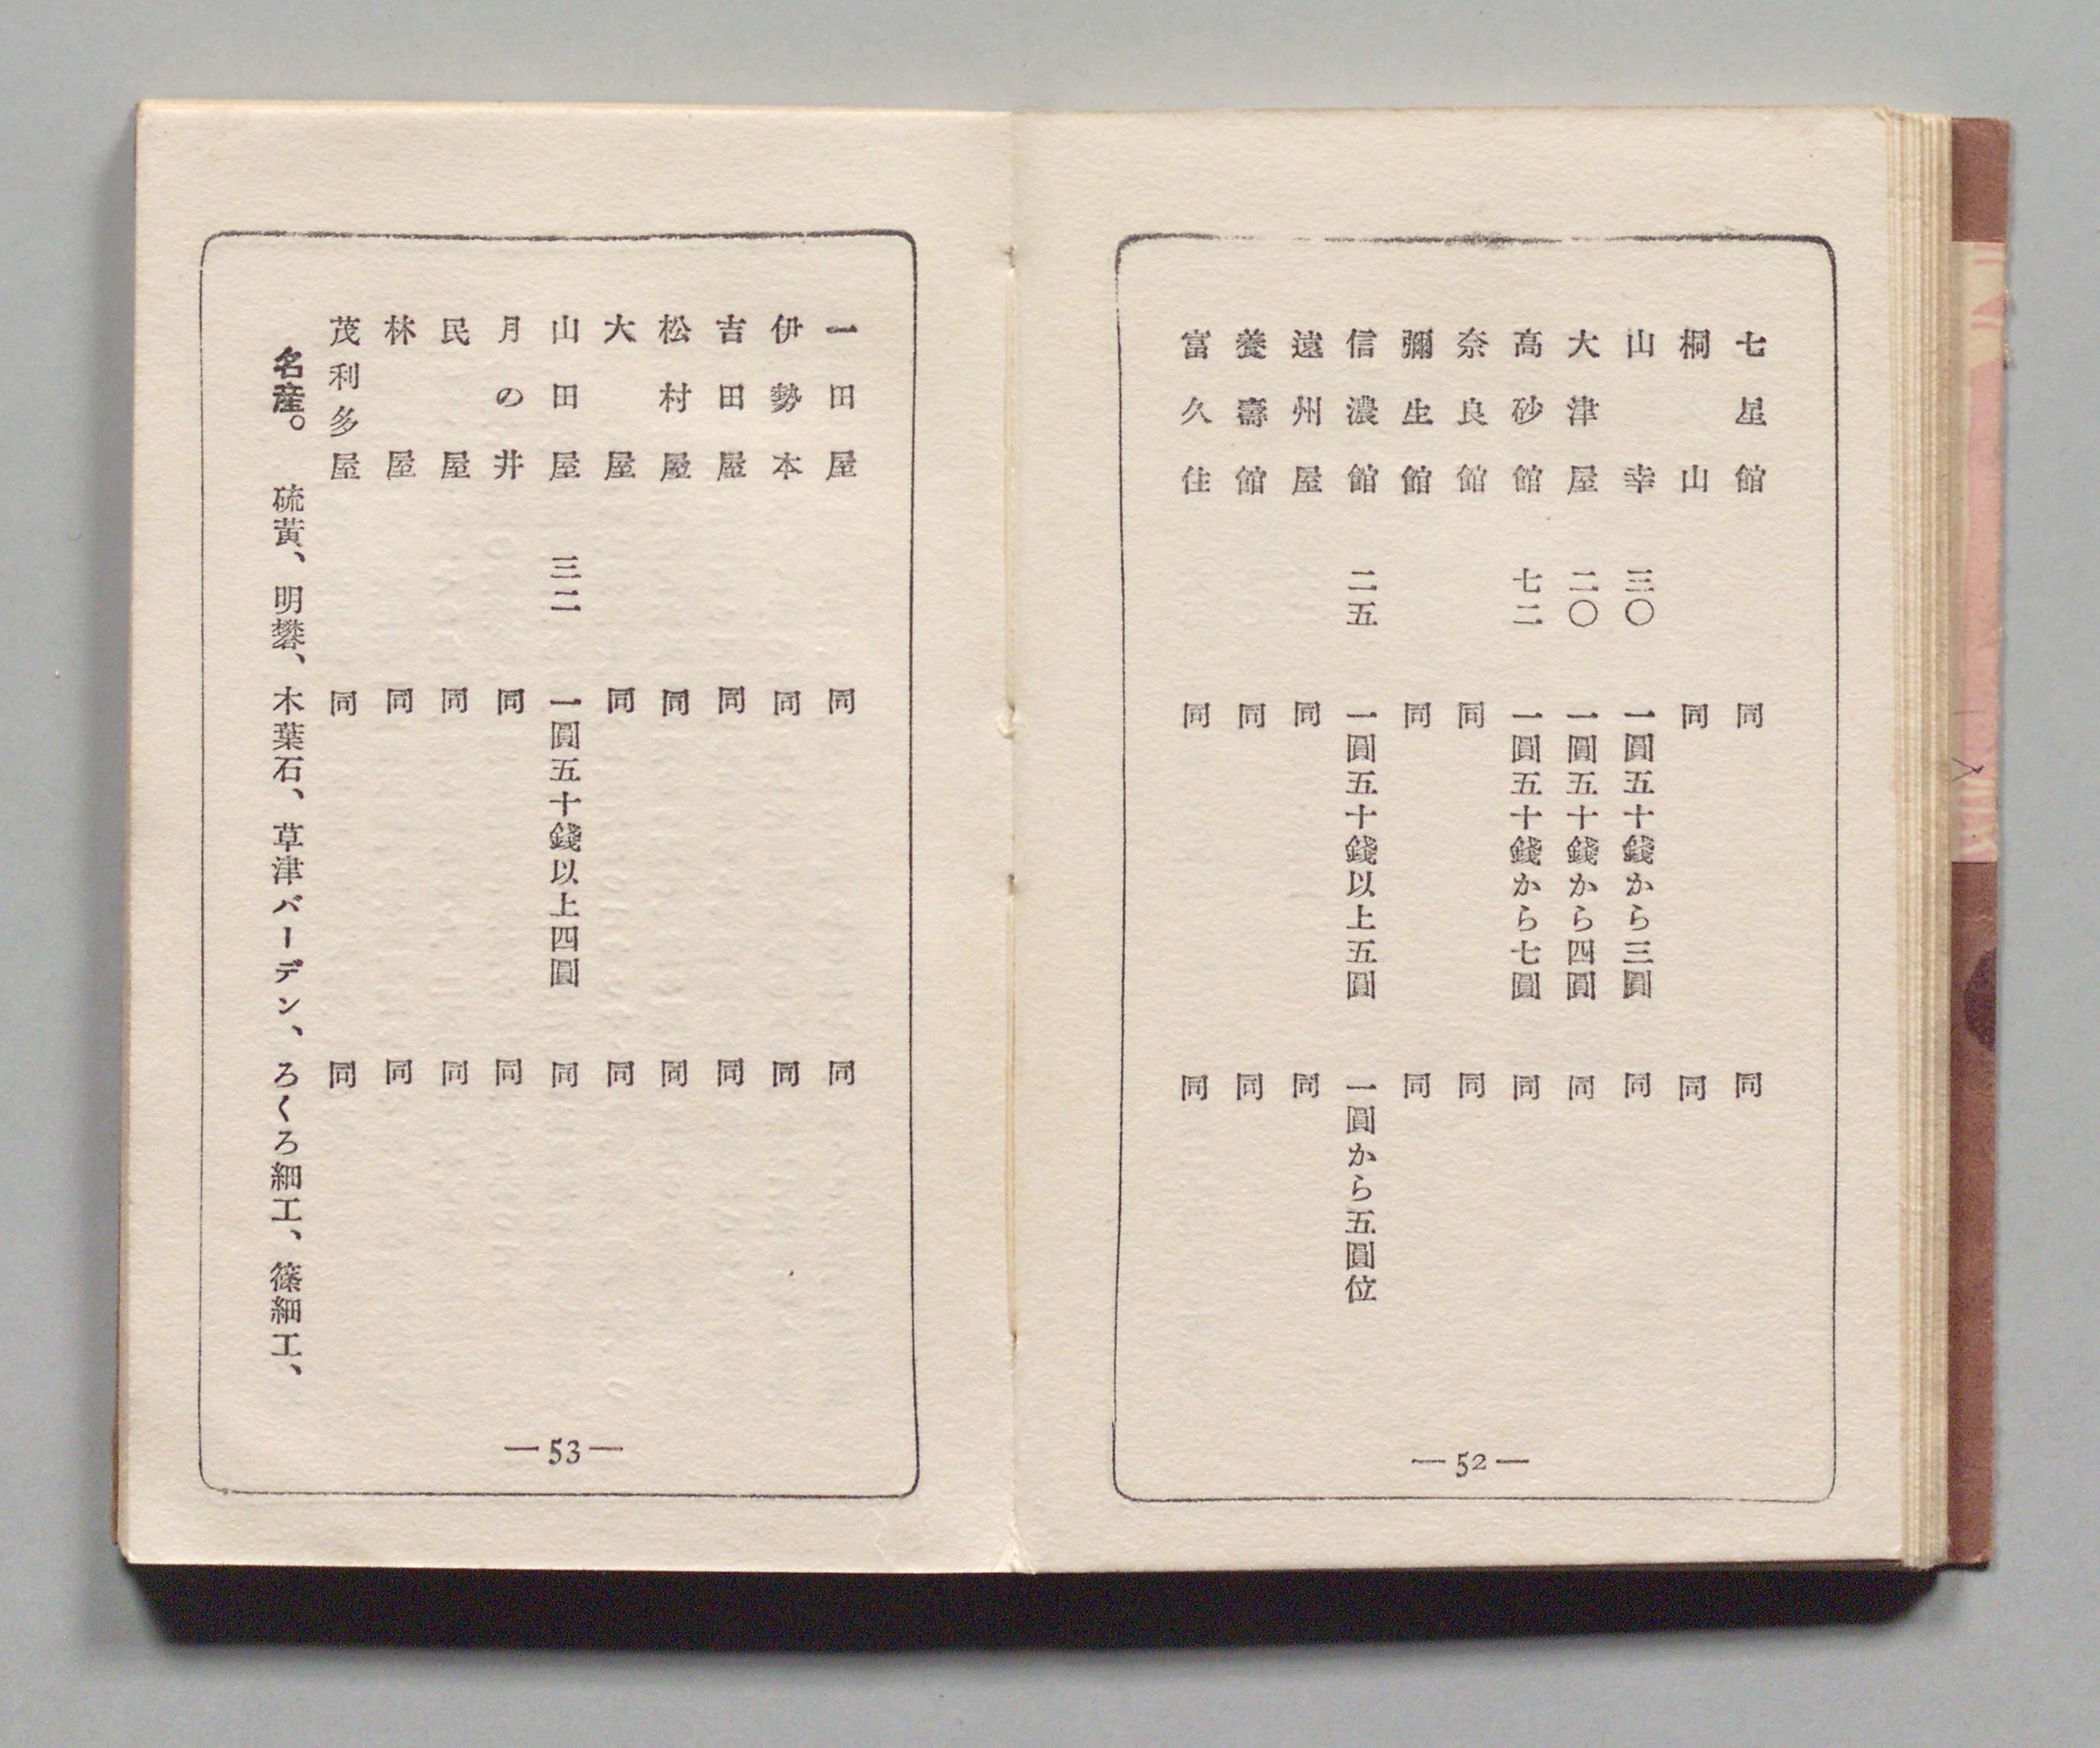 七星館 同 同
桐山 同 同
山幸 三〇 一圓五十錢から三圓 同
大津屋 二〇 一圓五十錢から四圓 同
高砂館 七二 一圓五十錢から七圓 同
奈良館 同 同
彌生館 同 同
信濃館 二五 一圓五十錢以上五圓 一圓から五圓位
遠州屋 同 同
養壽館 同 同
富久住 同 同
—52—
一田屋 同 同
伊勢本 同 同
吉田屋 同 同
松村屋 同 同
大屋 同 同
山田屋 三二 一圓五十錢以上四圓 同
月の井 同 同
民屋 同 同
林屋 同 同
茂利多屋 同 同
名産。 硫黄、明礬、木葉石、草津バーデン、ろくろ細工、篠細工、
—53—